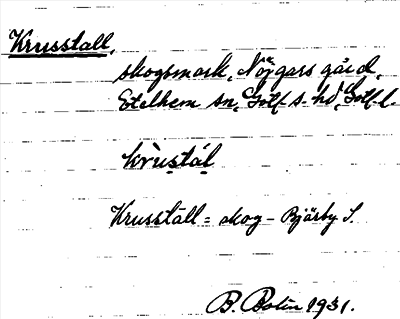 Krusstall,
skogsmark, Nöjgars gård,
Etelhem sn, Gotl. s. hd, Gotl. l.
krùstál
Krusstáll = skog - Bjärby S.
B. Bolin 1931.